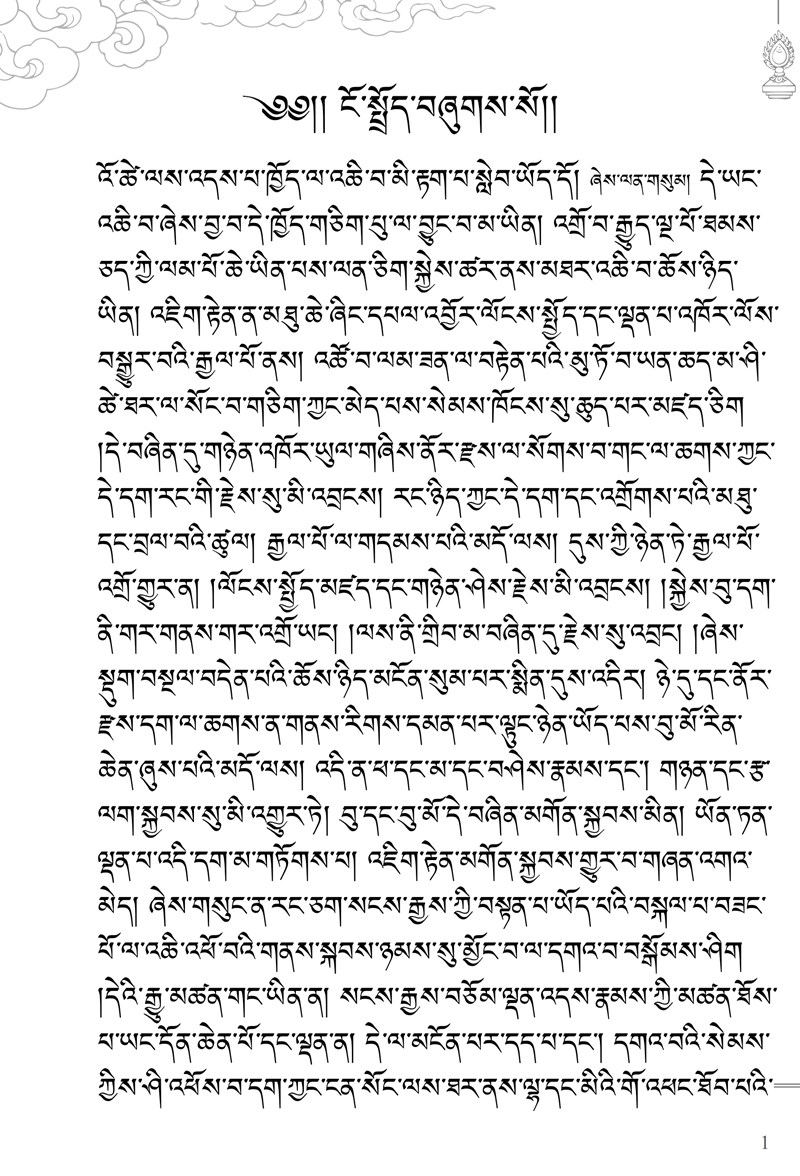 ༄༅།། ངོ་སྤྲོད་བཞུགས་སོ།།
འོ་ཚེ་ལས་འདས་པ་ཁྱོད་ལ་འཆི་བ་མི་རྟག་པ་སླེབ་ཡོད་དོ། ཞེས་ལན་གསུམ། དེ་ཡང་
འཆི་བ་ཞེས་བྱ་བ་དེ་ཁྱོད་གཅིག་པུ་ལ་བྱུང་བ་མ་ཡིན། འགྲོ་བ་རྒྱུད་ལྔ་པོ་ཐམས་
ཅད་ཀྱི་ལམ་པོ་ཆེ་ཡིན་པས་ལན་ཅིག་སྐྱེས་ཚར་ནས་མཐར་འཆི་བ་ཆོས་ཉིད་
ཡིན། འཇིག་རྟེན་ན་མཐུ་ཆེ་ཞིང་དཔལ་འབྱོར་ལོངས་སྤྱོད་དང་ལྡན་པ་འཁོར་ལོས་
བསྒྱུར་བའི་རྒྱལ་པོ་ནས། འཚོ་བ་ལམ་ཟན་ལ་བརྟེན་པའི་མུ་ཏོ་བ་ཡན་ཆད་མ་ཤི་
ཚེ་ཐར་ལ་སོང་བ་གཅིག་ཀྱང་མེད་པས་སེམས་ཁོངས་སུ་ཆུད་པར་མཛད་ཅིག
།དེ་བཞིན་དུ་གཉེན་འཁོར་ཡུལ་གཞིས་ནོར་རྫས་ལ་སོགས་བ་གང་ལ་ཆགས་ཀྱང་
དེ་དག་རང་གི་རྗེས་སུ་མི་འབྲངས། རང་ཉིད་ཀྱང་དེ་དག་དང་འགྲོགས་པའི་མཐུ་
དང་བྲལ་བའི་ཚུལ། རྒྱལ་པོ་ལ་གདམས་པའི་མདོ་ལས། དུས་ཀྱི་ཉེན་ཏེ་རྒྱལ་པོ་
འགྲོ་གྱུར་ན། །ལོངས་སྤྱོད་མཛད་དང་གཉེན་ཤེས་རྗེས་མི་འབྲངས། །སྐྱེས་བུ་དག་
ནི་གར་གནས་གར་འགྲོ་ཡང། །ལས་ནི་གྲིབ་མ་བཞིན་དུ་རྗེས་སུ་འབྲང། །ཞེས་
སྡུག་བསྔལ་བདེན་པའི་ཆོས་ཉིད་མངོན་སུམ་པར་སྨིན་དུས་འདིར། ཉེ་དུ་དང་ནོར་
རྫས་དག་ལ་ཆགས་ན་གནས་རིགས་དམན་པར་ལྟུང་ཉེན་ཡོད་པས་བུ་མོ་རིན་
ཆེན་ཞུས་པའི་མདོ་ལས། འདི་ན་ཕ་དང་མ་དང་བཤེས་རྣམས་དང་། གཉན་དང་རྩ
ལག་སྐྱབས་སུ་མི་འགྱུར་ཏེ། བུ་དང་བུ་མོ་དེ་བཞིན་མགོན་སྐྱབས་མིན། ཡོན་ཏན་
ལྡན་པ་འདི་དག་མ་གཏོགས་པ། འཇིག་རྟེན་མགོན་སྐྱབས་གྱུར་བ་གཞན་འགའ་
མེད། ཞེས་གསུང་ན་རང་ཅག་སངས་རྒྱས་ཀྱི་བསྟན་པ་ཡོད་པའི་བསྐལ་པ་བཟང་
པོ་ལ་འཆི་འཕོ་བའི་གནས་སྐབས་ཉམས་སུ་མྱོང་བ་ལ་དགའ་བ་བསྒོམས་ཤིག
།དེའི་རྒྱུ་མཚན་གང་ཡིན་ན། སངས་རྒྱས་བཅོམ་ལྡན་འདས་རྣམས་ཀྱི་མཚན་ཐོས་
པ་ཡང་དོན་ཆེན་པོ་དང་ལྡན་ན། དེ་ལ་མངོན་པར་དད་པ་དང་། དགའ་བའི་སེམས་
ཀྱིས་ཤི་འཕོས་བ་དག་ཀྱང་ངན་སོང་ལས་ཐར་ནས་ལྷ་དང་མིའི་གོ་འཕང་ཐོབ་པའི་
1